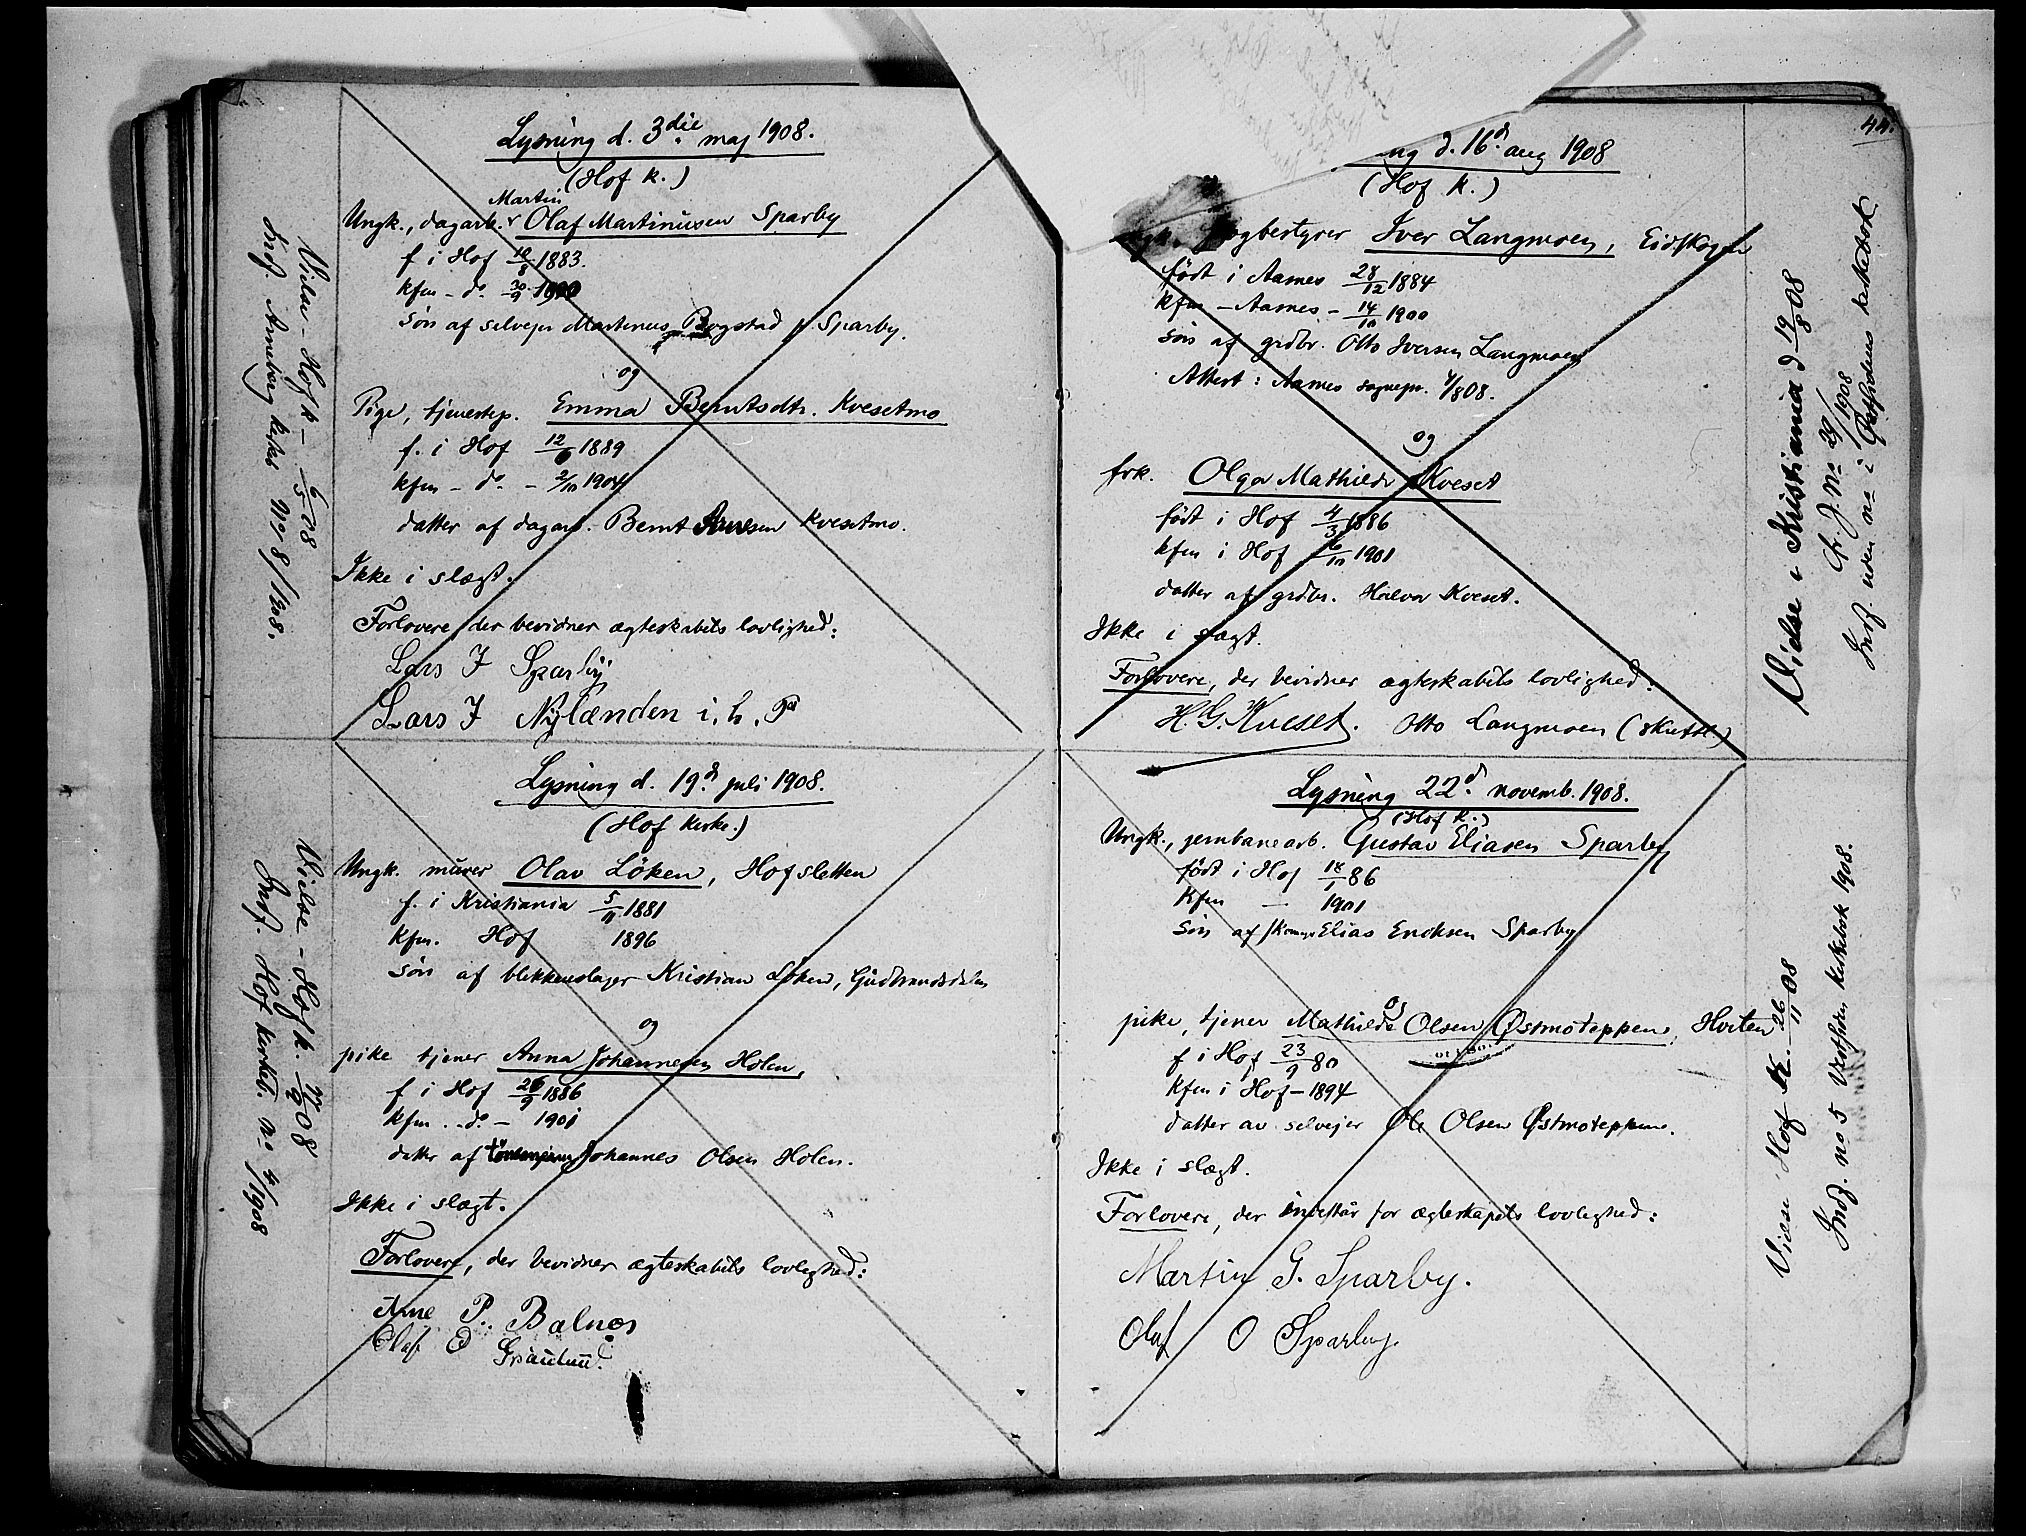 Lysning d. 3die maj 1908.
(Hof k.)
Martin
Ungk., dagarb. Olaf Martinusen Sparby
f i Hof 1883.
kfm - do. 30/9
Søn af selvejer Martinus Bogstad Sparby.
og
Pige, tjenestep. Emma Berntsdtr. Kvesetmo
f. i Hof 1889
kfm - do. - 2/10 1904
datter af dagarb. Bernt Kvesetmo.
Ikke i slægt.
Forlovere, der bevidner ægteskabets lovlighed:
Lars J Sparby
Lars J Nylænden i. h. P
Vielse - Hof k - 6/5 08
Indf. Arneberg kirkeb No 8/1908.
Lysning d. 19d juli 1908.
(Hof kirke.)
Ungk. murer Olav Löken, Hofsletten
f. i Kristiania 5/11 1881
kfm. Hof 1896
Søn af blikkenslager Kristian Löken, Gudbrandsdalen
og
pike tjener Anna Johannesen Holen,
f i Hof 26/9 1886
kfm. - do - 1901
datter af Johannes Olsen Holen.
Ikke i slægt.
Forlovere, der bevidner ægteskabets lovlighed:
Arne P. Balnes
Olaf O
Vielse - Hof k. 08
Indf. Hof kirkeb. no 4/1908
44.
d. 16d aug 1908
(Hof k.)
Iver Langmoen, Eidskogen
född i Aasnes 28/12 1884
kfm - Aasnes - 14/10 1900
Søn af grdbr. Otto Iversen Langmoen
Attest: Aasnes sognepr. 08.
og
frk. Olga Mathilde Kveset
født i Hof 4/3 1886
kfm i Hof 6/10 1901
datter af grdbr. Halvor Kveset.
Ikke i slægt.
Forlovere, der bevidner ægteskabets lovlighed:
H. G. Kveset. Otto Langmoen (skriftl)
Vielse i Kristiania d 19/8 08
Cfr. J. No 29/1908
Indf. uden no i kirkebok
Lysning 22d. novemb. 1908.
(Hof k.)
Ungk., jernbanearb. Gustav Eliasen Sparby
født i Hof 18/1 86
kfm - 1901
Søn af Elias Ericksen Sparby
og
pike, tjener Mathilde Olsen Østmoteppen, Hviten
f i Hof 23/9 80
kfm i Hof - 1894
datter av selvejer Ole Olsen Østmoteppen.
Ikke i slægt.
Forlovere, der indestår for ægteskapets lovlighed:
Martin G. Sparby.
Olaf O Sparby.
Vielse Hof K. 26/11 08
Indf. no 5 kirkebok 1908.